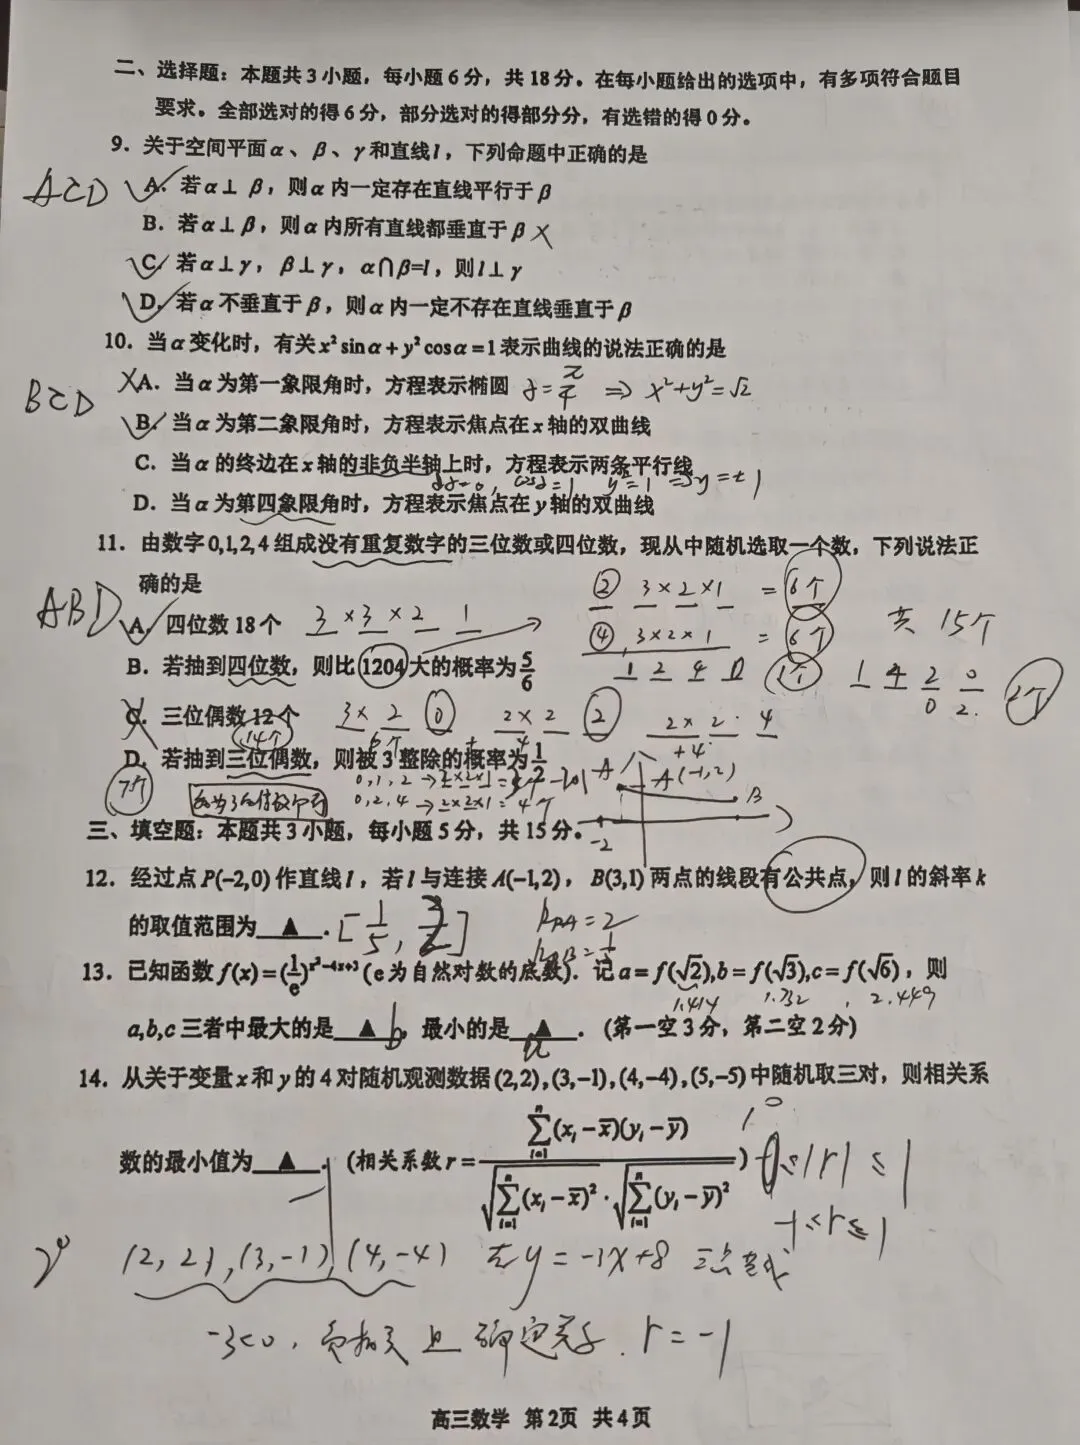 二、选择题：本题共3小题，每小题6分，共18分。在每小题给出的选项中，有多项符合题目
要求。全部选对的得6分，部分选对的得部分分，有选错的得0分。
9．关于空间平面α、β、γ和直线l，下列命题中正确的是
ACD
A．若α⊥β，则α内一定存在直线平行于β
B．若α⊥β，则α内所有直线都垂直于β ×
C．若α⊥γ，β⊥γ，α∩β=l，则l⊥γ
D．若α不垂直于β，则α内一定不存在直线垂直于β
10．当α变化时，有关x²sinα+y²cosα=1表示曲线的说法正确的是
×A．当α为第一象限角时，方程表示椭圆 α=π/4 ⇒ x²+y²=√2
BCD
B．当α为第二象限角时，方程表示焦点在x轴的双曲线
C．当α的终边在x轴的非负半轴上时，方程表示两条平行线
cosα=1 y²=1 ⇒y=±1
D．当α为第四象限角时，方程表示焦点在y轴的双曲线
11．由数字0,1,2,4组成没有重复数字的三位数或四位数，现从中随机选取一个数，下列说法正
确的是 ② 3×2×1 =6个
ABD
A．四位数18个 3×3×2 1 ④ 3×2×1 =6个 共15个
B．若抽到四位数，则比1204大的概率为5/6 1 2 4 0 1个 1 4 2 0 0 2 2个
C．三位偶数12个 3×2 0 2×2 2 2×2 4
14个 6个 +4 +4
D．若抽到三位偶数，则被3整除的概率为1/2 A A(-1,2)
7个 0,1,2→2×2×1= B
0,2,4→2×2×1=4个
三、填空题：本题共3小题，每小题5分，共15分。 -2
12．经过点P(–2,0)作直线l，若l与连接A(–1,2)，B(3,1)两点的线段有公共点，则l的斜率k
的取值范围为▲．[1/5, 2] kPA=2
kPB=1/5
13．已知函数f(x)=(1/e)^(x²–4x+3)(e为自然对数的底数)．记a=f(√2),b=f(√3),c=f(√6)，则
1.414 1.732 2.449
a,b,c三者中最大的是▲b，最小的是▲a．(第一空3分，第二空2分)
14．从关于变量x和y的4对随机观测数据(2,2),(3,–1),(4,–4),(5,–5)中随机取三对，则相关系
数的最小值为▲．(相关系数r=∑(i=1→n)(xᵢ–x̄)(yᵢ–ȳ)/(√∑(i=1→n)(xᵢ–x̄)²·√∑(i=1→n)(yᵢ–ȳ)²)) 0≤|r|≤1
-1≤r≤1
(2,2),(3,-1),(4,-4) 在y=-3x+8 三点共线
-3<0，负相关且确定关系．r=-1
高三数学 第2页 共4页